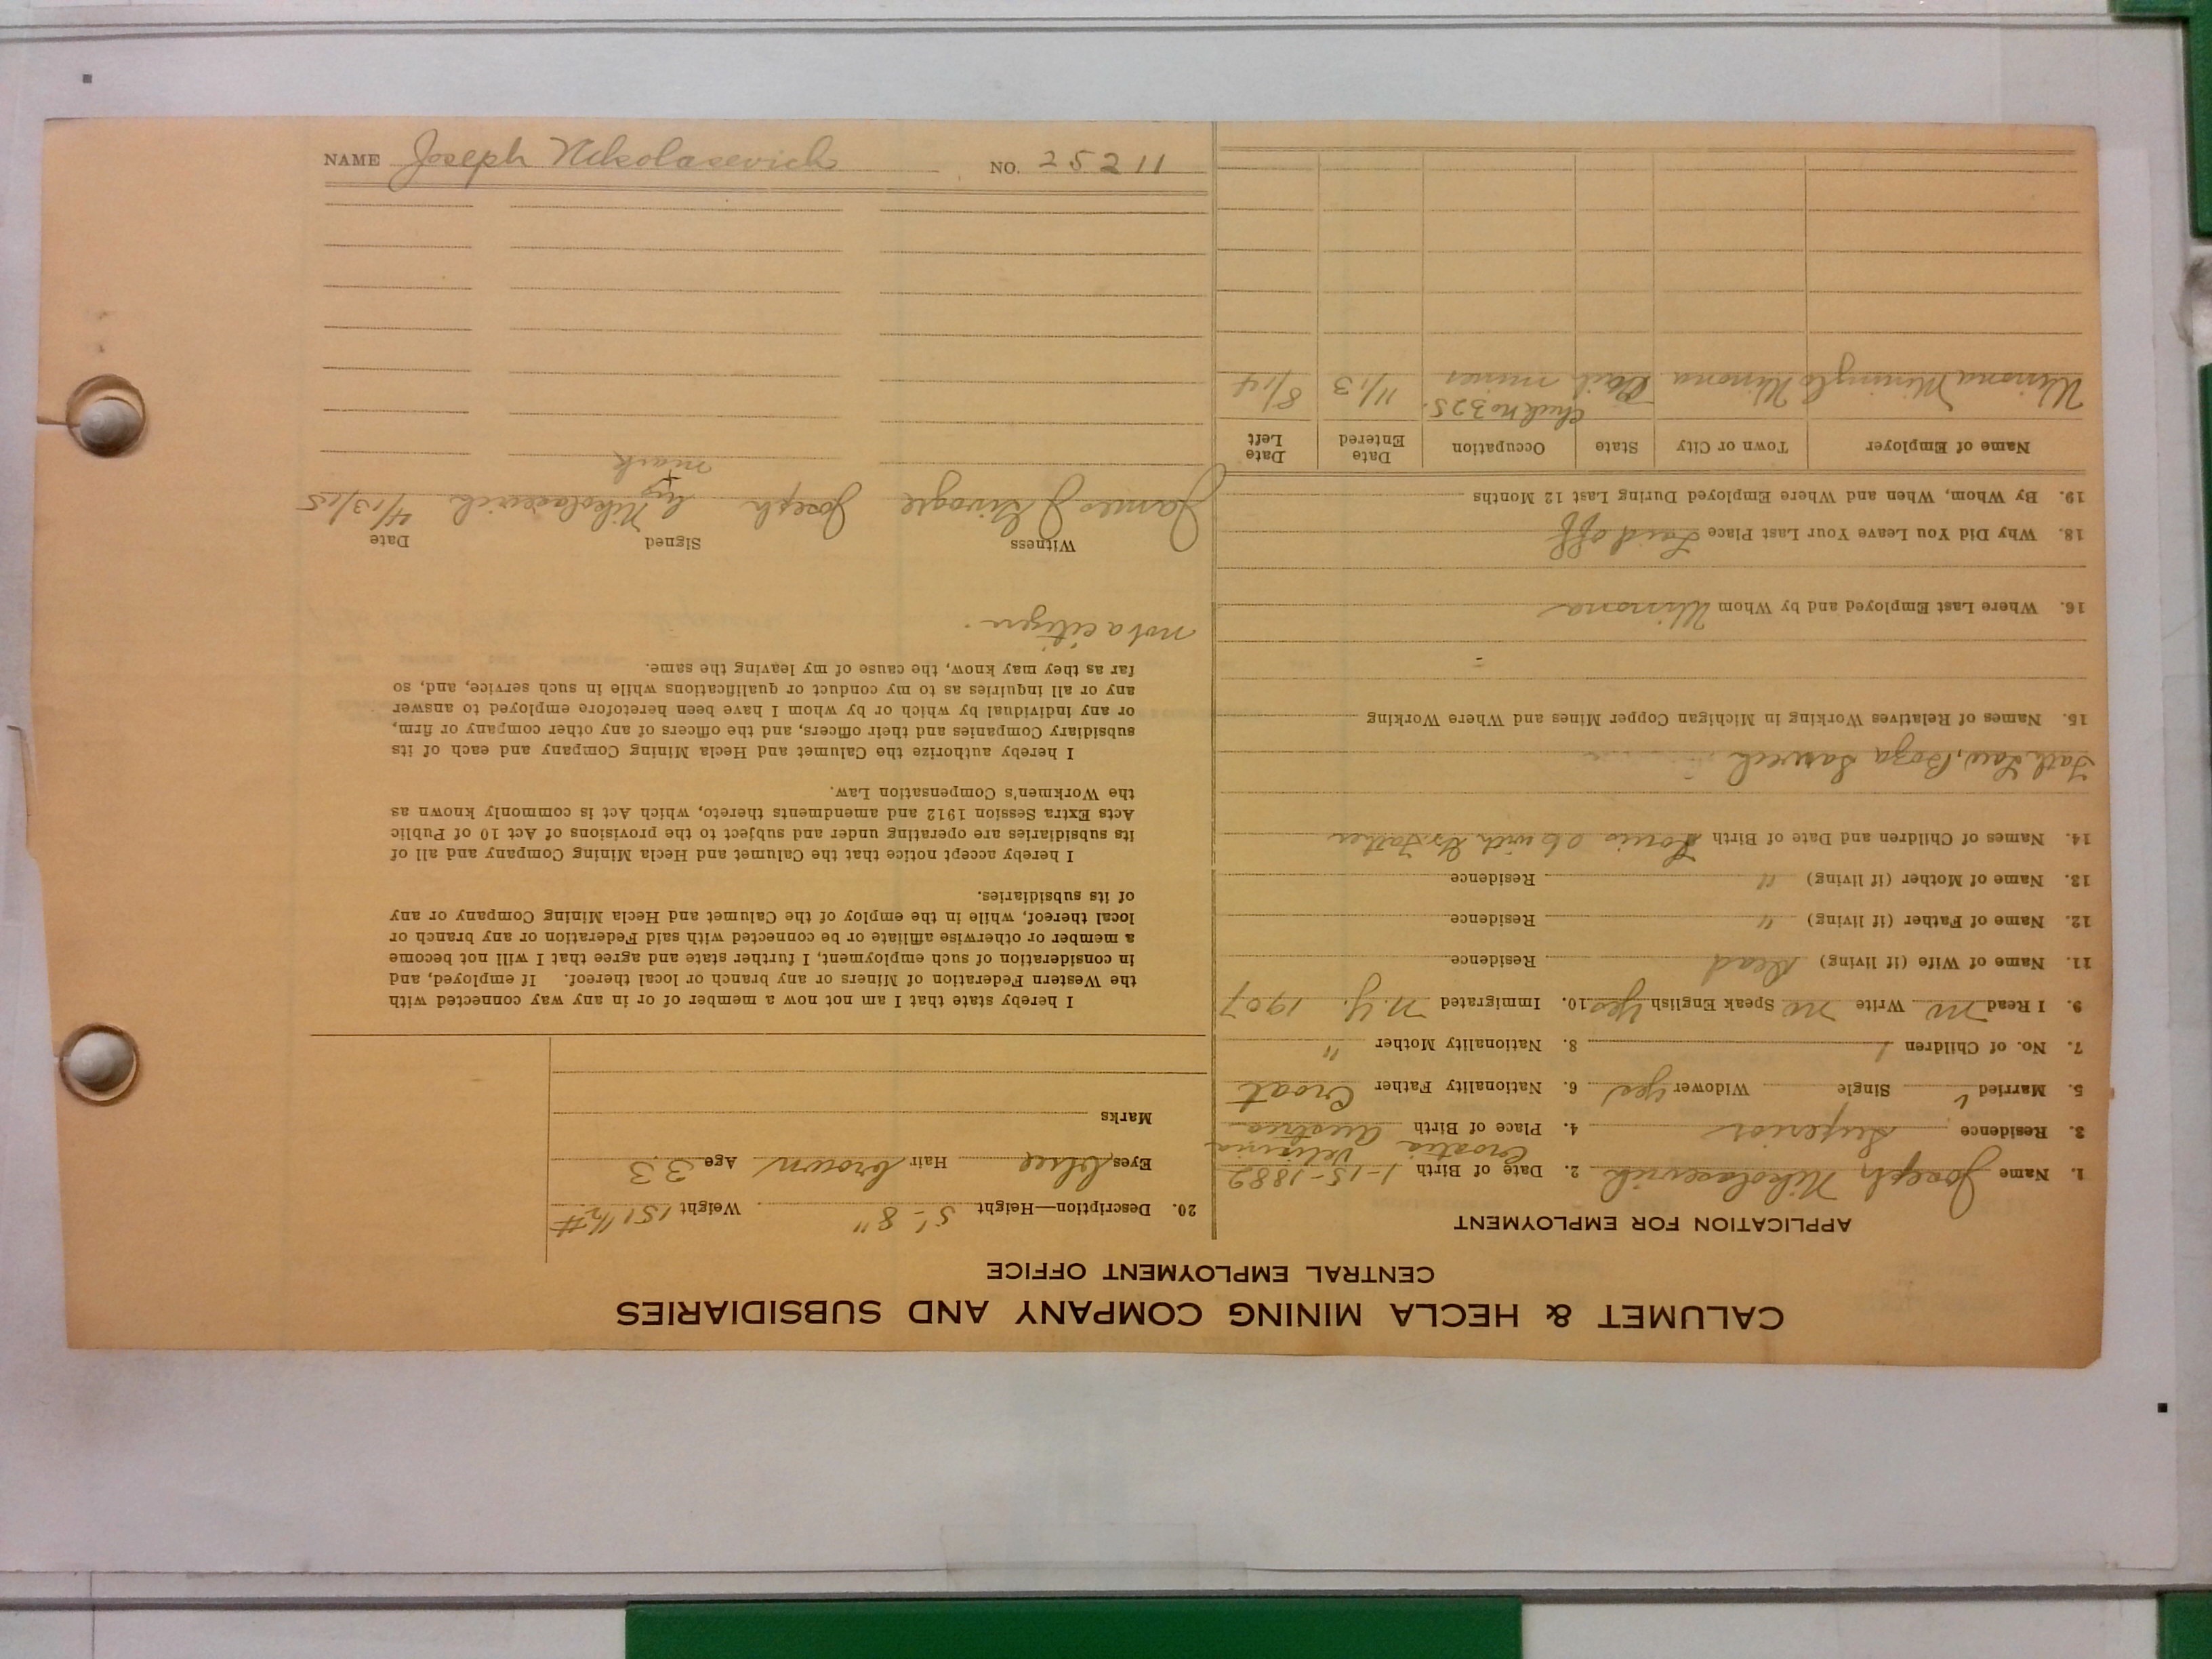 NAME Joseph Nikolasevich NO. 25211
CALUMET & HECLA MINING COMPANY AND SUBSIDIARIES
CENTRAL EMPLOYMENT OFFICE
APPLICATION FOR EMPLOYMENT
1. Name Joseph Nikolasevich 2. Date of Birth 1-15-1882
Croatia
3. Residence Superior 4. Place of Birth Austria
5. Married Single Widower Yes 6. Nationality Father Croat
7. No. of Children 1 8. Nationality Mother "
9. I Read No Write no Speak English Yes 10. Immigrated N.Y. 1907
11. Name of Wife (if living) Dead Residence
12. Name of Father (if living) " Residence
13. Name of Mother (if living) " Residence
14. Names of Children and Date of Birth Louis with Gr. Father
Fath Law, Boza
15. Names of Relatives Working in Michigan Copper Mines and Where Working
16. Where Last Employed and by Whom Winona
18. Why Did You Leave Your Last Place Laid off
19. By Whom, When and Where Employed During Last 12 Months
Name of Employer Town or City State Occupation Date Entered Date Left
Check no 325.
Winona Mining Co Winona miner 11/13 8/14
20. Description—Height 5'-8" Weight 151 1/2 #
Eyes blue Hair brown Age 33
Marks
I hereby state that I am not now a member of or in any way connected with
the Western Federation of Miners or any branch or local thereof. If employed, and
in consideration of such employment, I further state and agree that I will not become
a member or otherwise affiliate or be connected with said Federation or any branch or
local thereof, while in the employ of the Calumet and Hecla Mining Company or any
of its subsidiaries.
I hereby accept notice that the Calumet and Hecla Mining Company and all of
its subsidiaries are operating under and subject to the provisions of Act 10 of Public
Acts Extra Session 1912 and amendments thereto, which Act is commonly known as
the Workmen's Compensation Law.
I hereby authorize the Calumet and Hecla Mining Company and each of its
subsidiary Companies and their officers, and the officers of any other company or firm,
or any individual by which or by whom I have been heretofore employed to answer
any or all inquiries as to my conduct or qualifications while in such service, and, so
far as they may know, the cause of my leaving the same.
not a citizen.
Witness Signed Date
James J Joseph his x Nikolasevich 4/13/15
mark